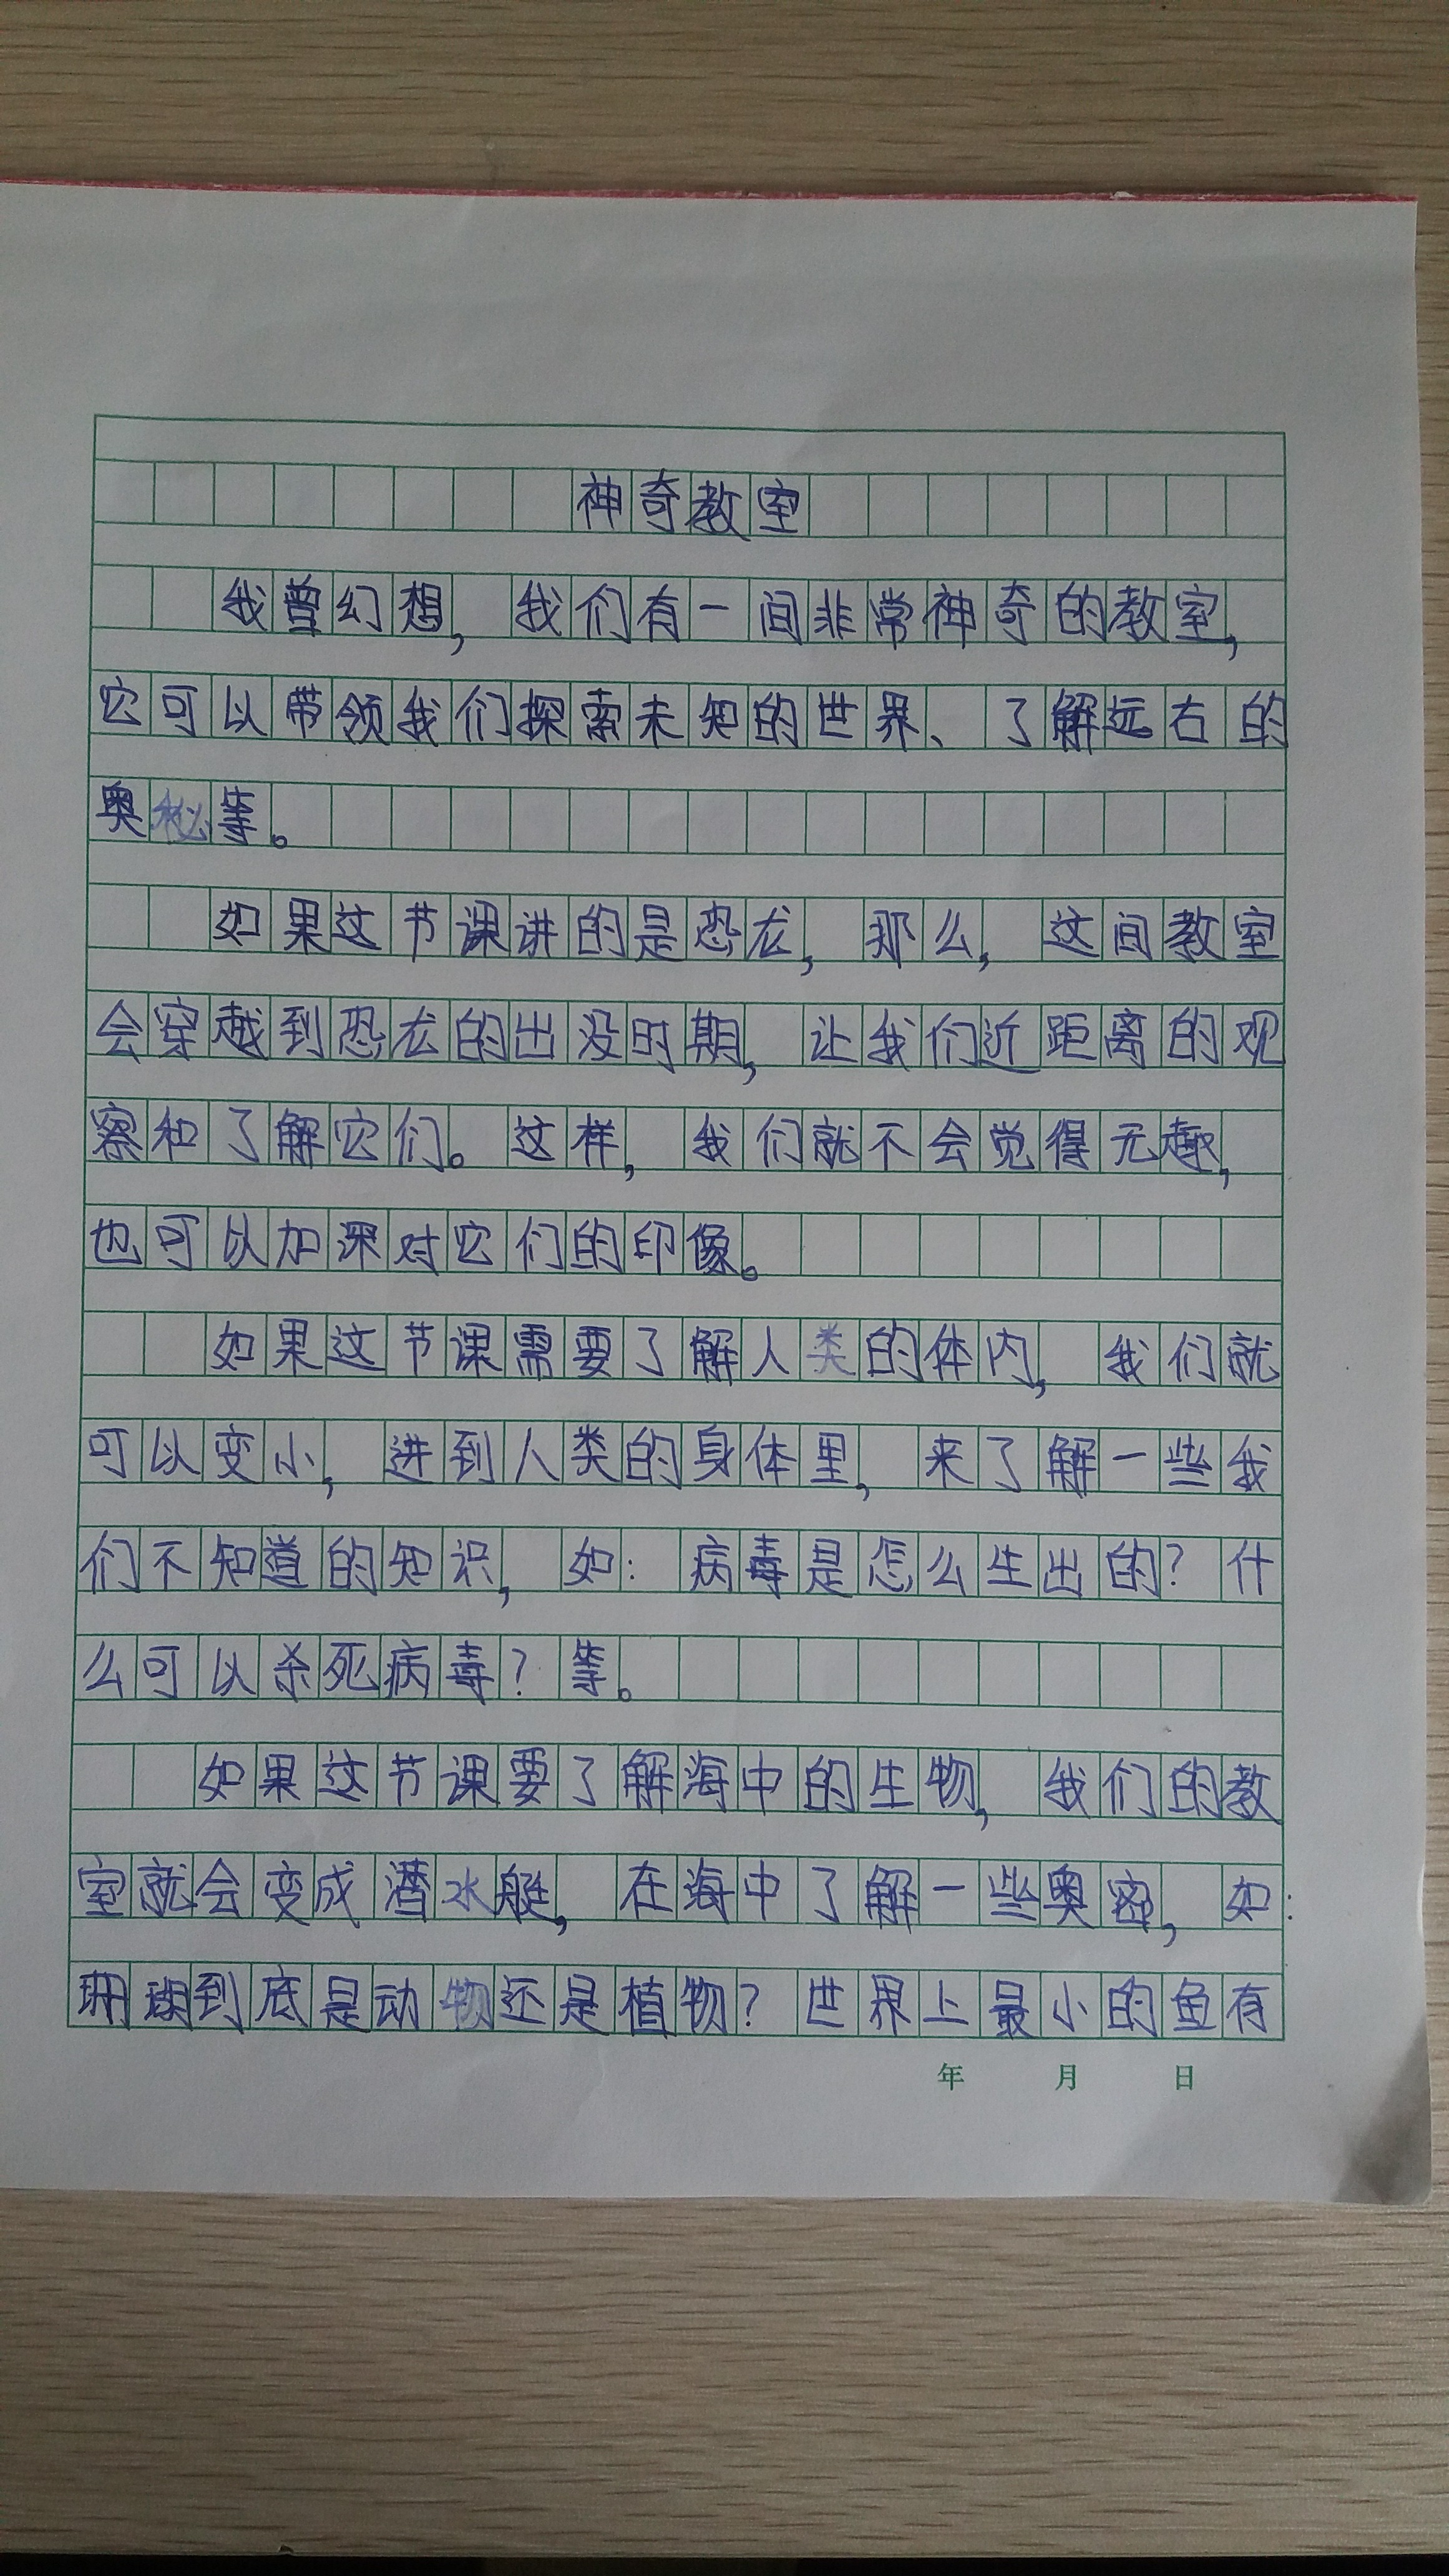 神奇教室
我曾幻想，我们有一间非常神奇的教室，
它可以带领我们探索未知的世界、了解远右的
奥秘等。
如果这节课讲的是恐龙，那么，这间教室
会穿越到恐龙的出没时期，让我们近距离的观
察和了解它们。这样，我们就不会觉得无趣，
也可以加深对它们的印像。
如果这节课需要了解人类的体内，我们就
可以变小，进到人类的身体里，来了解一些我
们不知道的知识，如：病毒是怎么生出的？什
么可以杀死病毒？等。
如果这节课要了解海中的生物，我们的教
室就会变成潜水艇，在海中了解一些奥密，如：
珊瑚到底是动物还是植物？世界上最小的鱼有
年 月 日